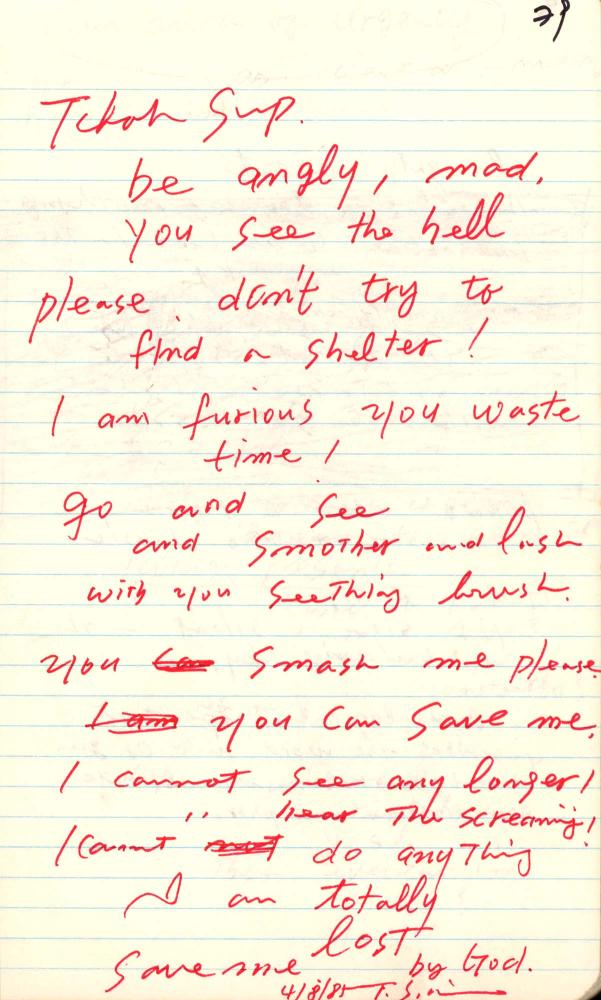 29
Tckoh Sup.
be angly, mad.
you see the hell
please don't try to
find a shelter!
I am furious you waste
time!
go and see
and smother and lash
with you seething brush.
you smash me please
I am you can save me.
I cannot see any longer!
" hear the screaming!
I cannot do anything
I am totally
lost
save me by God.
4/8/85 T. S.